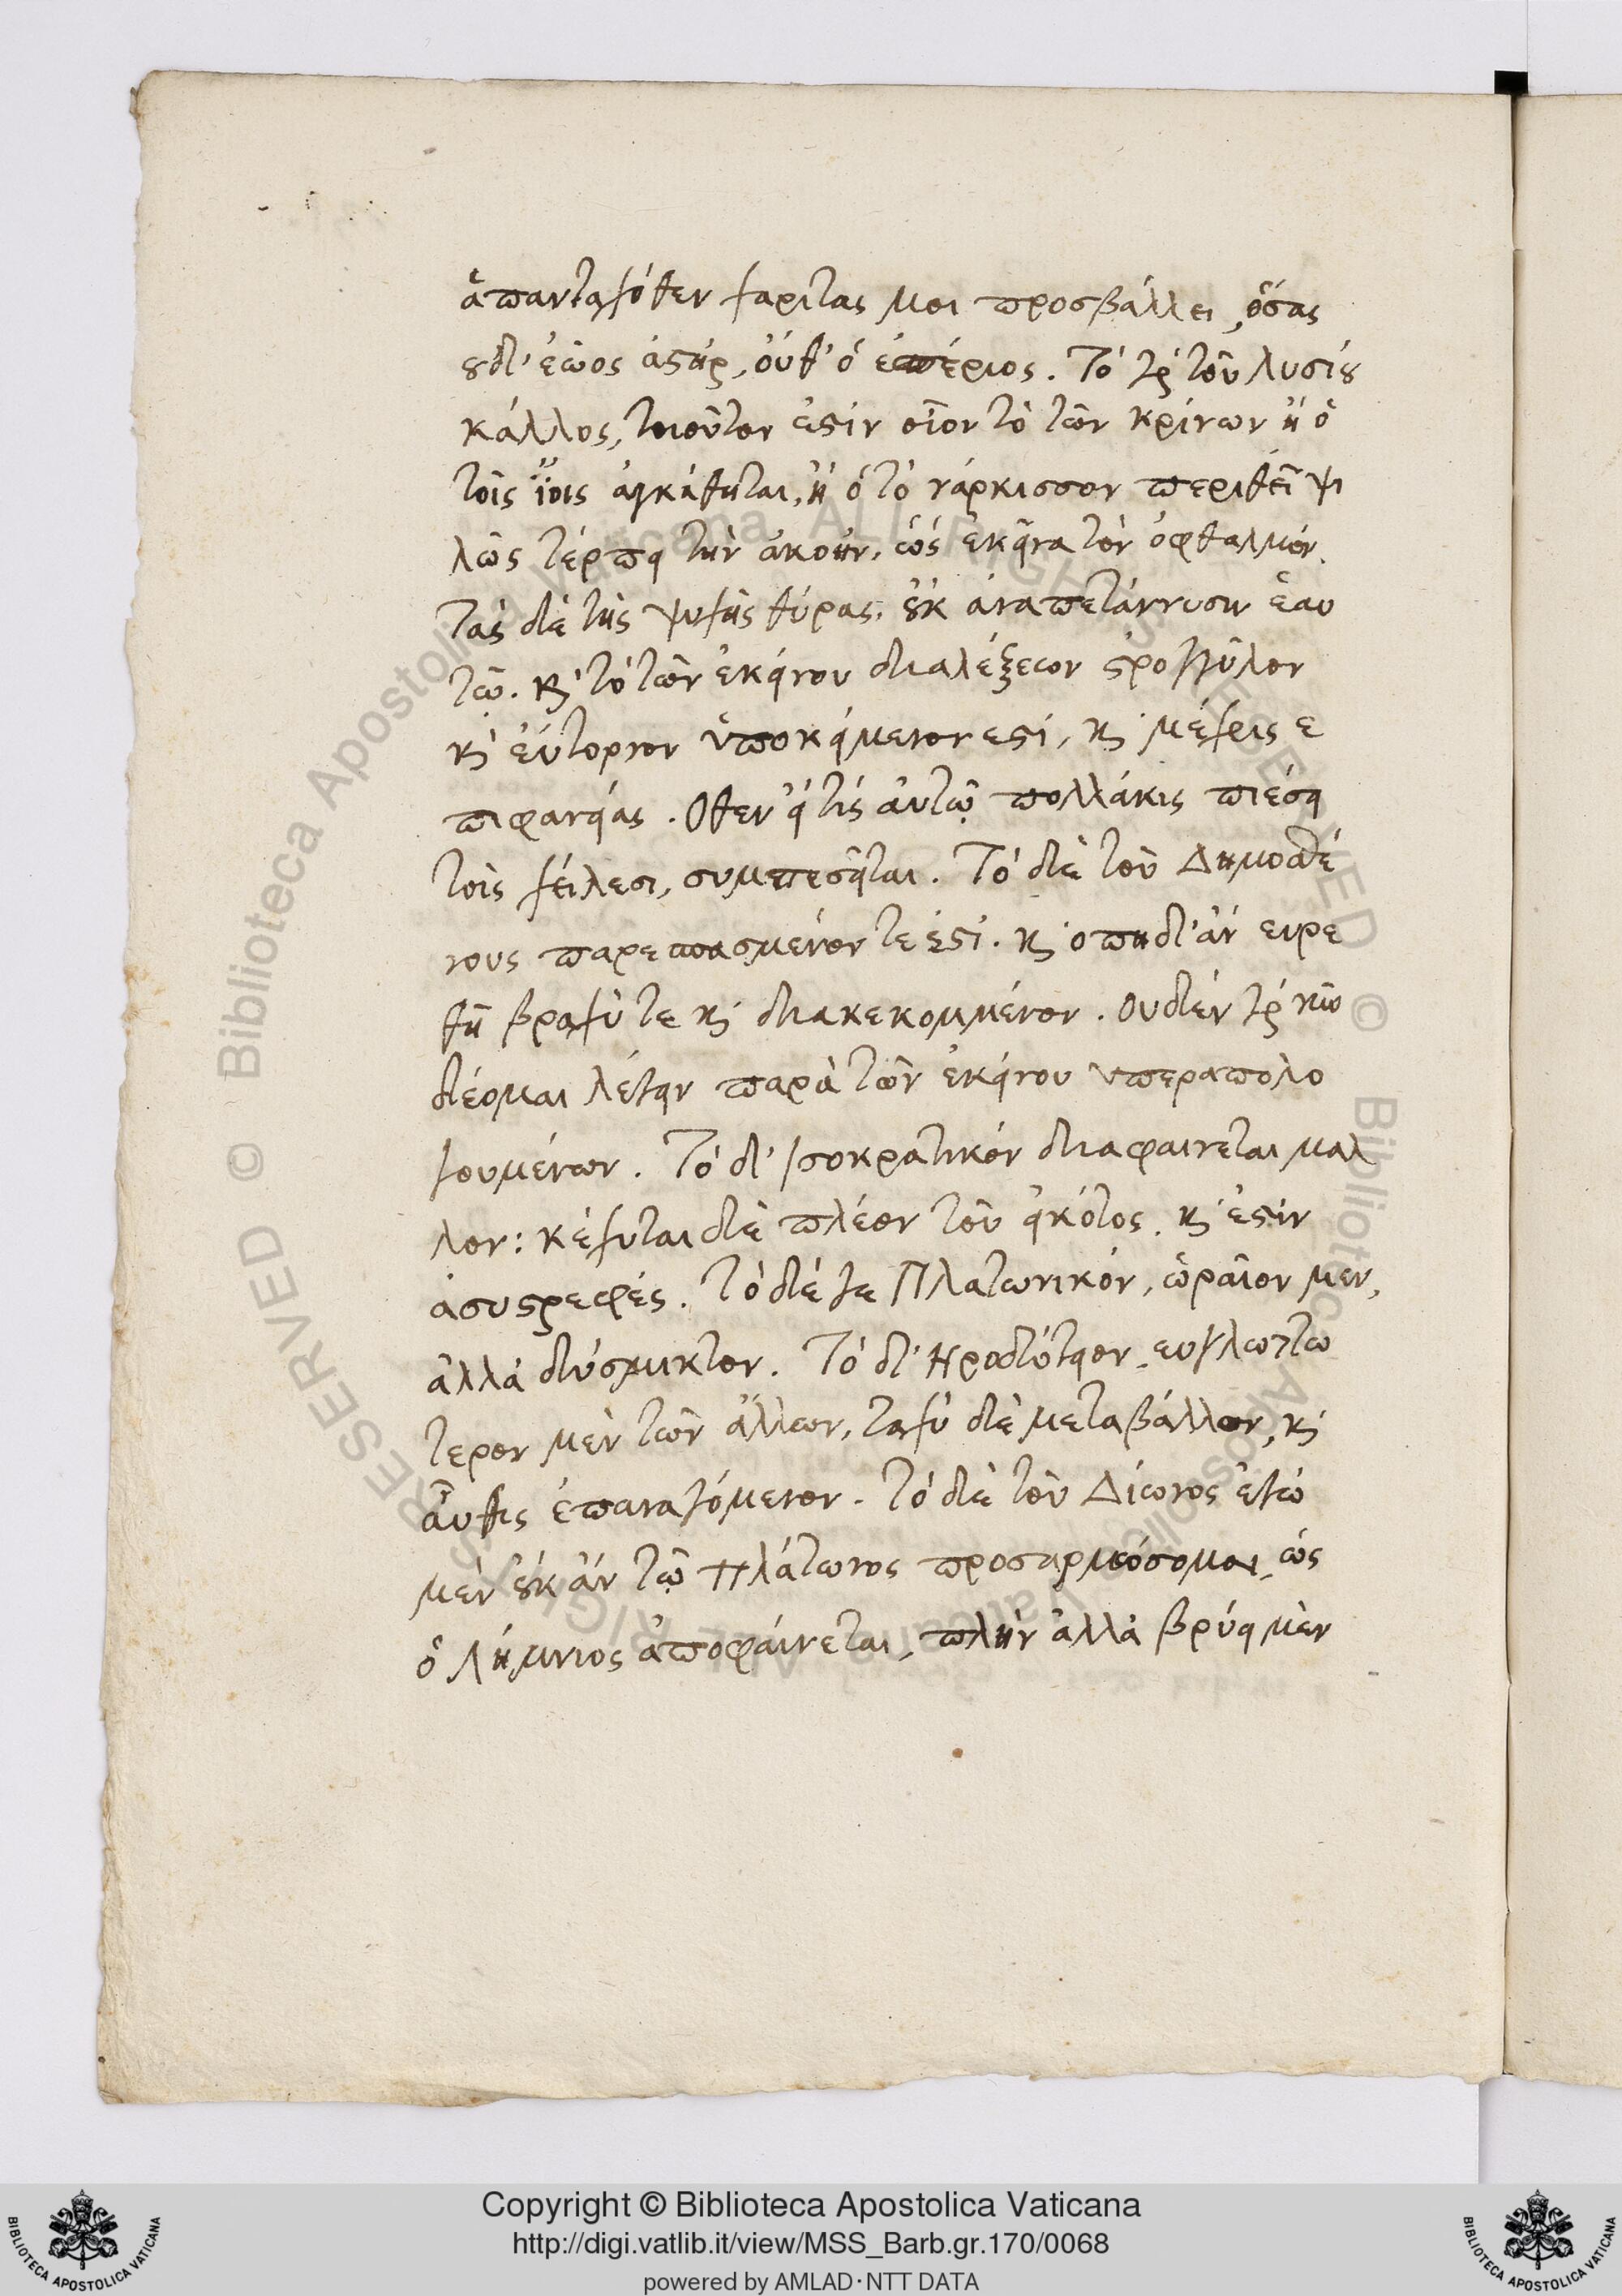 ἁπανταχόθεν χαρίτας μοι προσβάλλει, ὅσας
ȣδ' ἑῶος ἀϛὴρ, οὔθ' ὁ ἑσπέριος. Τὸ γὰρ τοῦ Λυσίȣ
κάλλος, τοιοῦτον ἐϛὶν οἷον τὸ τῶν κρίνων ἢ ὁ
τοῖς ἴοις ἀγκάθηται, ἢ ὁ τὸ νάρκισσον περιθεῖ ψι
λῶς τέρπει τὴν ἀκοὴν, ὡς ἐκεῖνα τὸν ὀφθαλμόν.
Τὰς δὲ τῆς ψυχῆς θύρας, ȣ̓κ ἀναπετάννυσιν ἑαυ
τῷ. κ̀ τὸ τῶν ἐκείνου διαλέξεων ϛρογγύλον
κ̀ εὔτορνον ὑποκείμενον ἐϛὶ, κ̀ μέχρις ε
πιφανείας. Οθεν εἴ τις αὐτῷ πολλάκις πιέσει
τοῖς χείλεσι, συμπεσεῖται. Τὸ δὲ τοῦ Δημοσθέ
νους παρεσπασμένον τε ἐϛὶ. κ̀ ὁπηδ' ἂν ευρε
θῇ βραχύ τε κ̀ διακεκομμένον. Ουδὲν γὰρ νῦν
δέομαι λέγειν παρὰ τῶν ἐκείνου υπεραπολο
γουμένων. Τὸ δ' Ισοκρατικὸν διαφαινεται μαλ
λον: κέχυται δὲ πλέον τοῦ εἰκότος, κ̀ ἐϛὶν
ἀσυϛρεφές. Τὸ δέ γε Πλατωνικόν, ὡραῖον μεν,
ἀλλὰ δύσμικτον. Τὸ δ' Ηροδότειον, ευγλωττω
τερον μὲν τῶν ἄλλων, ταχὺ δὲ μεταβάλλον, κ̀
αὖθις ἐπαναγόμενον. Τὸ δὲ τοῦ Δίωνος ἐγώ
μὲν ȣ̓κ ἂν τῷ Πλάτωνος προσαρμόσομαι, ὡς
ὁ Λήμνιος ἀποφαίνεται, πλὴν ἀλλὰ βρύει μὲν
Copyright © Biblioteca Apostolica Vaticana
http://digi.vatlib.it/view/MSS_Barb.gr.170/0068
powered by AMLAD·NTT DATA